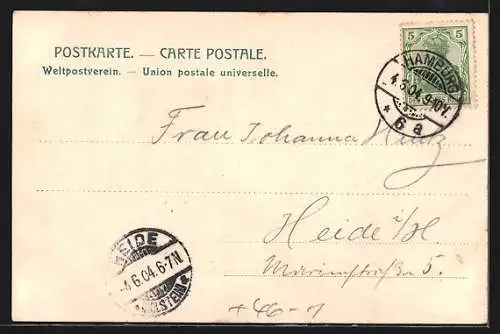 POSTKARTE. — CARTE POSTALE.
Weltpostverein. — Union postale universelle.
5 5
HAMBURG
4.6.04.9-10V.
* 6 a
Frau Johanna
Heide i/H.
Marienstraße 5.
HEIDE
4.6.04.6-7N
HOLSTEIN